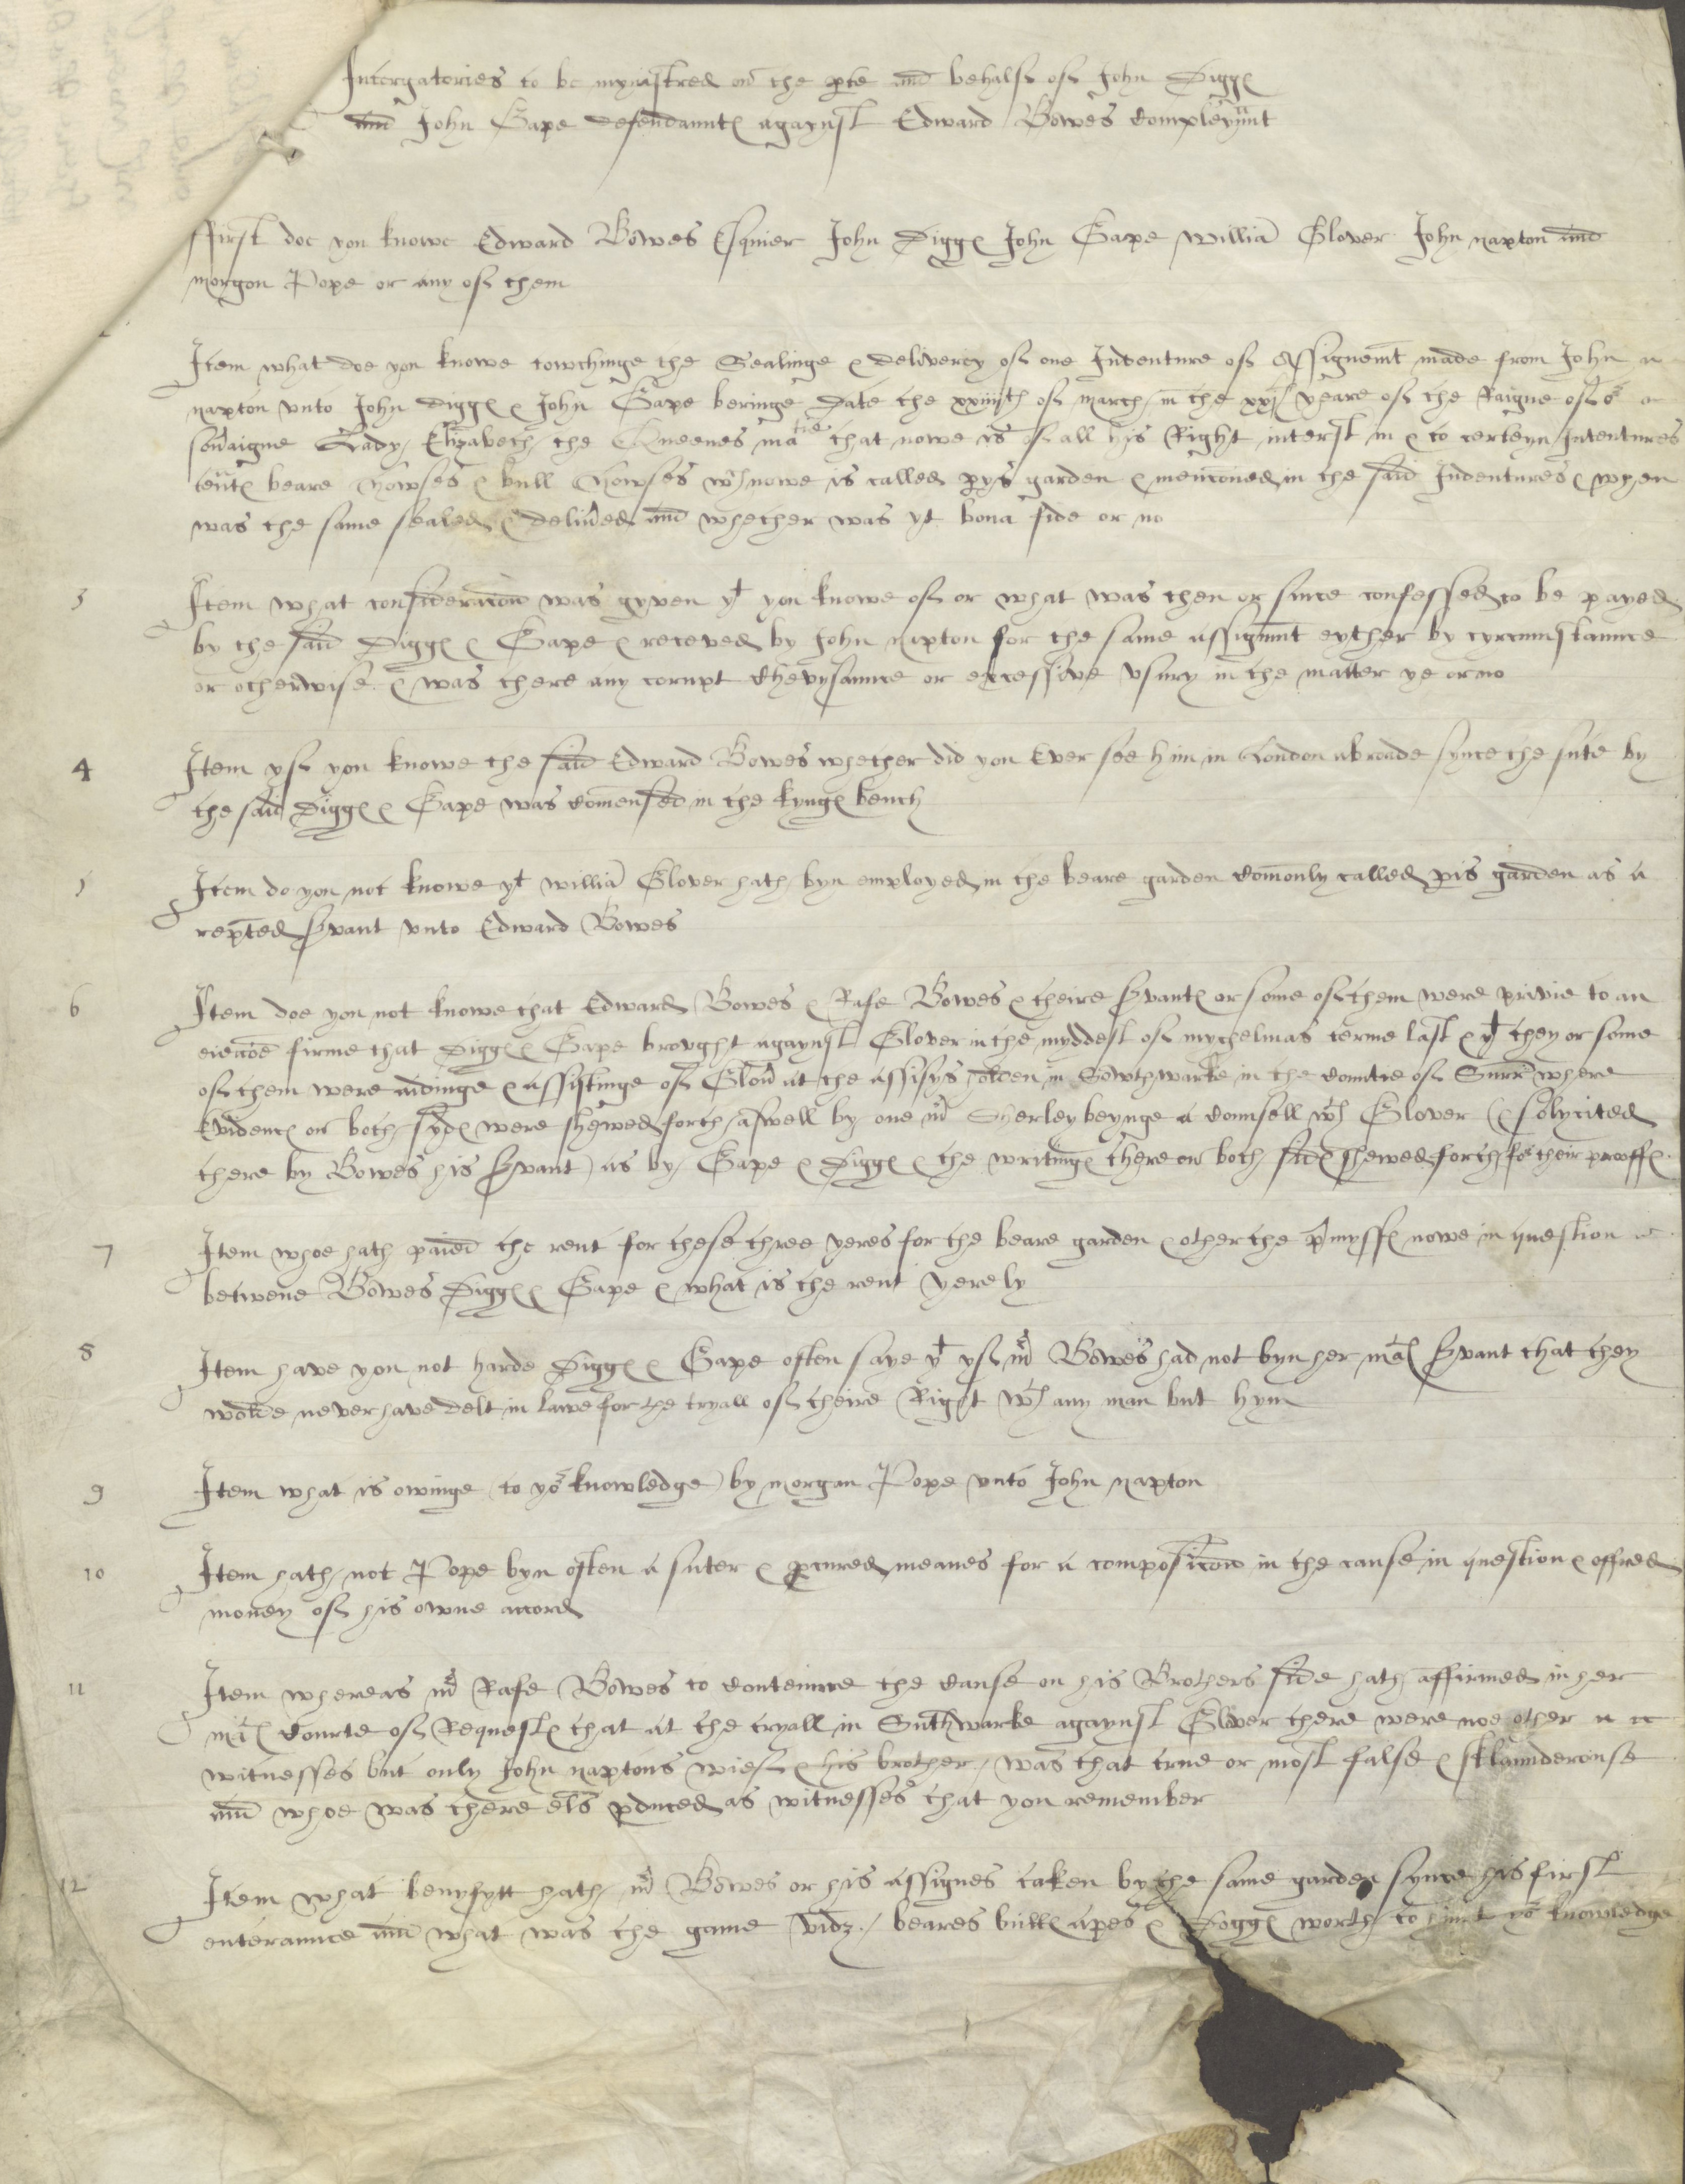 Intergatories to be mynistred on the pte and behalf of John Digg
and John Gape defendannt agaynst Edward Bowes Compleynnt
ffirst doe you knowe Edward Bowes Esquier John Digg John Gape Willia Glover John napton and
morgon Pope or any of them
Item what doe you knowe towchinge the Sealinge & deliverey of one Indenture of Assignemt made from John
napton vnto John Digg & John Gape beringe Date the xxiiijth of march in the xxj yeare of the Raigne of or
souaigne Lady Elizabeth the Queenes matie that nowe is of all his Right interst in & to certeyn Indentures
tents beare howses & bull howses wch nowe is called parys garden & mencioned in the said Indentures & when
was the same sealed & deliued and whether was yt bona fide or no
3 Item what consideracion was gyven yt you knowe of or what was then or since confessed to be payed
by the said Digg & Gape & receved by John napton for the same assignmt eyther by cyrcumstannce
or otherwise & was there any corupt Chevysannce or excessive vsury in the matter ye or no
4 Item yf you knowe the said Edward Bowes whether did you Ever see him in London abroade synce the sute by
the said Digg & Gape was Comensed in the kyng bench
5 Item do you not knowe yt Willia Glover hath byn employed in the beare garden Comonly called pis garden as a
repted Svant vnto Edward Bowes
6 Item doe you not knowe that Edward Bowes & Rafe Bowes & theire Svant or some of them were privie to an
eieccoe firme that Digg & Gape brovght agaynst Glover in the myddest of mychelmas terme last & yt they or some
of them were aidinge & assistinge of Glou at the assisys holden in Sowthwarke in the Countie of Surr where
Evidenc on both syd were shewed forth aswell by one mr Sherley beynge a Counsell wth Glover (& solycited
there by Bowes his Svant) as by Gape & Digg & the writing there on both sid shewed forth for their prooff
7 Item whoe hath paied the rent for these three yeres for the beare garden & other the pmyss nowe in question
betwene Bowes Digg & Gape & what is the rent yerely
8 Item have you not harde Digg & Gape often saye yt yf mr Bowes had not byn her mat Svant that they
wolde never have delt in lawe for the tryall of theire Right wth any man but hym
9 Item what is owinge (to yor knowledge) by morgan Pope vnto John napton
10 Item hath not Pope byn often a suter & pcured meanes for a composicion in the cause in question & offred
money of his owne accord
11 Item whereas mr Rafe Bowes to Conteinwe the Cause on his Brothers side hath affirmed in her
mat Courte of Request that at the tryall in Suthwarke agaynst Glover there were noe other
witnesses but only John naptons wief & his brother / was that true or most false & sklaunderouse
and whoe was there els pduced as witnesses that you remember
12 Item what benyfytt hath mr Bowes or his assignes taken by the same garden synce his first
enterannce and what was the game vidz / beares bull apes & Dogg worth to yor knowledge